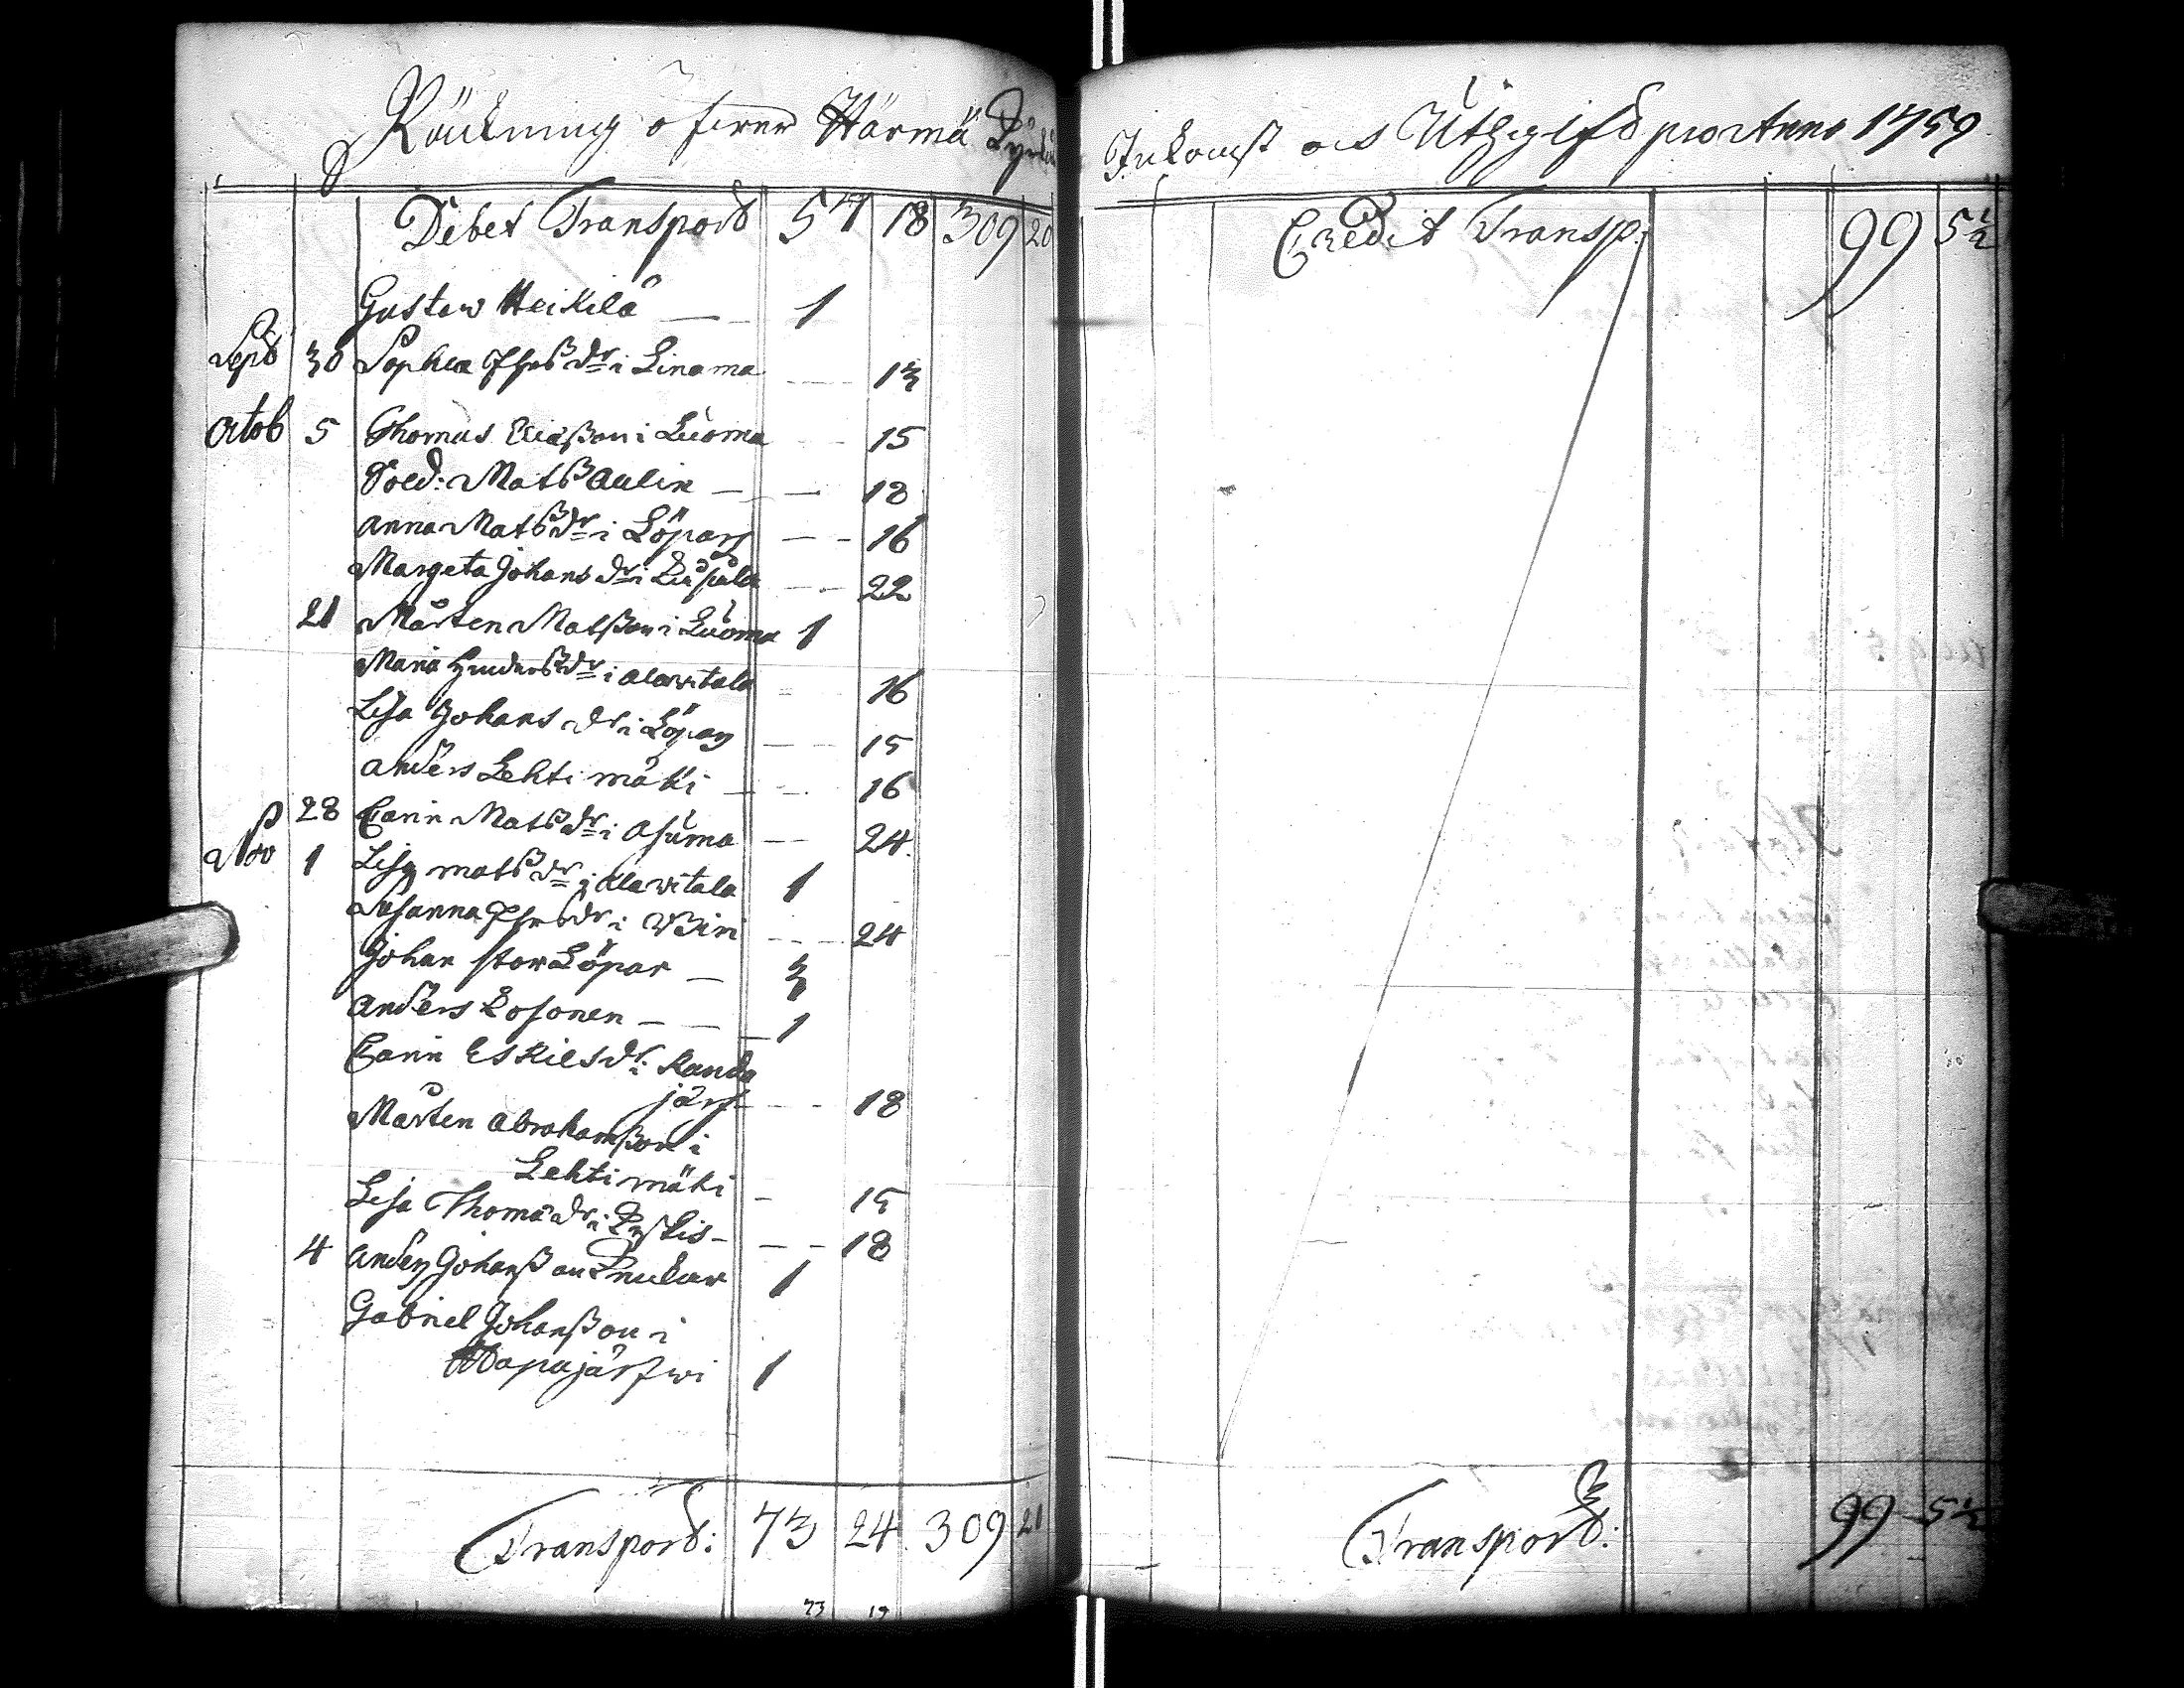 Räkning öfwer Härmä Kyrckio
Debet Transport 57 18 309 20
Gustaw Heikilä — 1
Sept 30 Sophia Ihrs dr i Linama — 13
Octob 5 Thomas Eliasson i Luoma — 15
Sold: Mats Aulin — 18
Anna Mats dr i Löpars — 16
Margeta Johans dr i — 22
21 Mårten Matsson i Luoma 1
Maria Hindrs dr i Alawitala — 16
Lisa Johans dr i Löpars — 15
Anders Lehtimäki — 16
28 Carin Mats dr i Asuma — 24
Nov 1 Lisa Mats dr i Alawitala 1
Susanna dr i — 24
Johan Stor Löpar — 3
Anders Kosonen — 1
Carin Eskils dr Kauda
järf — 18
Mårten Abrahamsson i
Lehtimäki — 15
Lisa Thoma dr i — 18
4 Anders Johansson 1
Gabriel Johansson i
Wapajärfwi 1
Transport: 73 24 309 21
73 19
Inkomst och Uthgift pro Anno 1759
Credit Transp: 99 5½
Transport: 99 5½